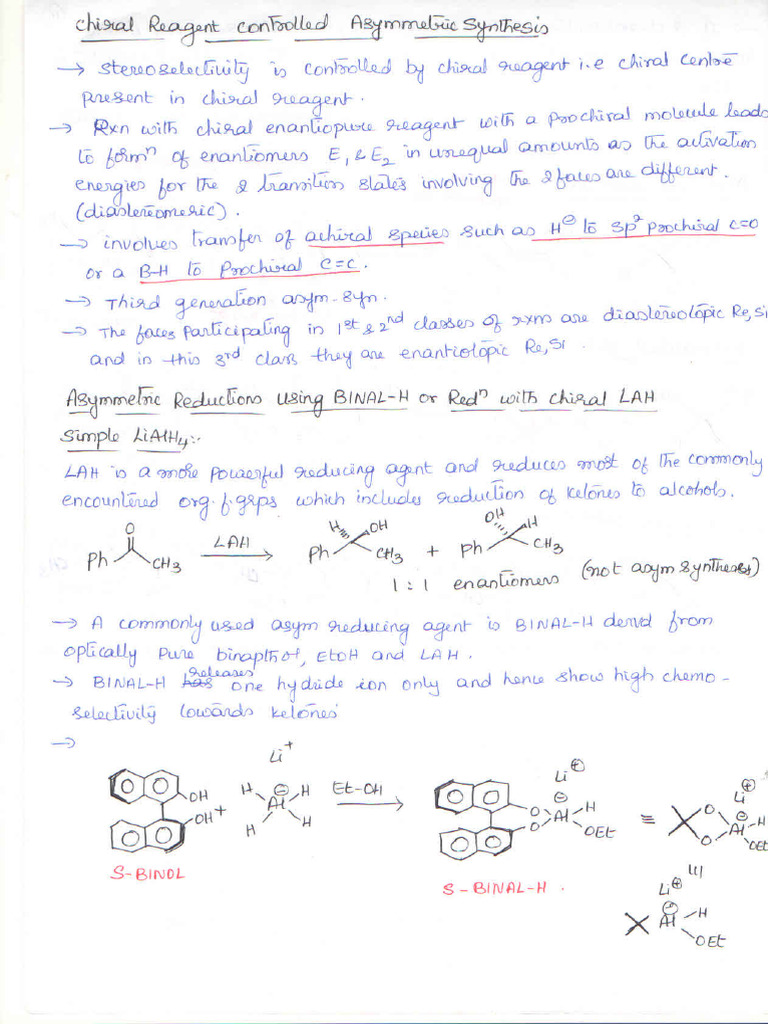 Chiral Reagent controlled Asymmetric Synthesis
→ Stereoselectivity is controlled by chiral reagent i.e chiral centre
present in chiral reagent.
→ Rxn with chiral enantiopure reagent with a prochiral molecule leads
to formⁿ of enantiomers E₁ & E₂ in unequal amounts as the activation
energies for the 2 transition states involving the 2 faces are different.
(diastereomeric).
→ involves transfer of achiral species such as H⊖ to sp² prochiral C=O
or a B-H to Prochiral C=C.
→ Third generation asym. syn.
→ The faces participating in 1st & 2nd classes of rxns are diastereotopic Re, Si
and in this 3rd class they are enantiotopic Re, Si.
Asymmetric Reductions using BINAL-H or Redⁿ with chiral LAH
Simple LiAlH₄:-
LAH is a more powerful reducing agent and reduces most of the commonly
encountered org. f. grps which includes reduction of ketones to alcohols.
O
Ph CH₃ LAH H OH Ph CH₃ + OH H Ph CH₃
1 : 1 enantiomers (not asym synthesis)
→ A commonly used asym reducing agent is BINAL-H dervd from
optically pure binapthol, EtOH and LAH.
→ BINAL-H releases one hydride ion only and hence show high chemo-
selectivity towards ketones
→
Li⁺ Li⊕ Li⊕
OH OH + H H Al⊖ H H Et-OH O O Al⊖ H OEt ≡ O O Al⊖ H OEt
S-BINOL
S-BINAL-H.
≡
Li⊕
Al⊖ H OEt